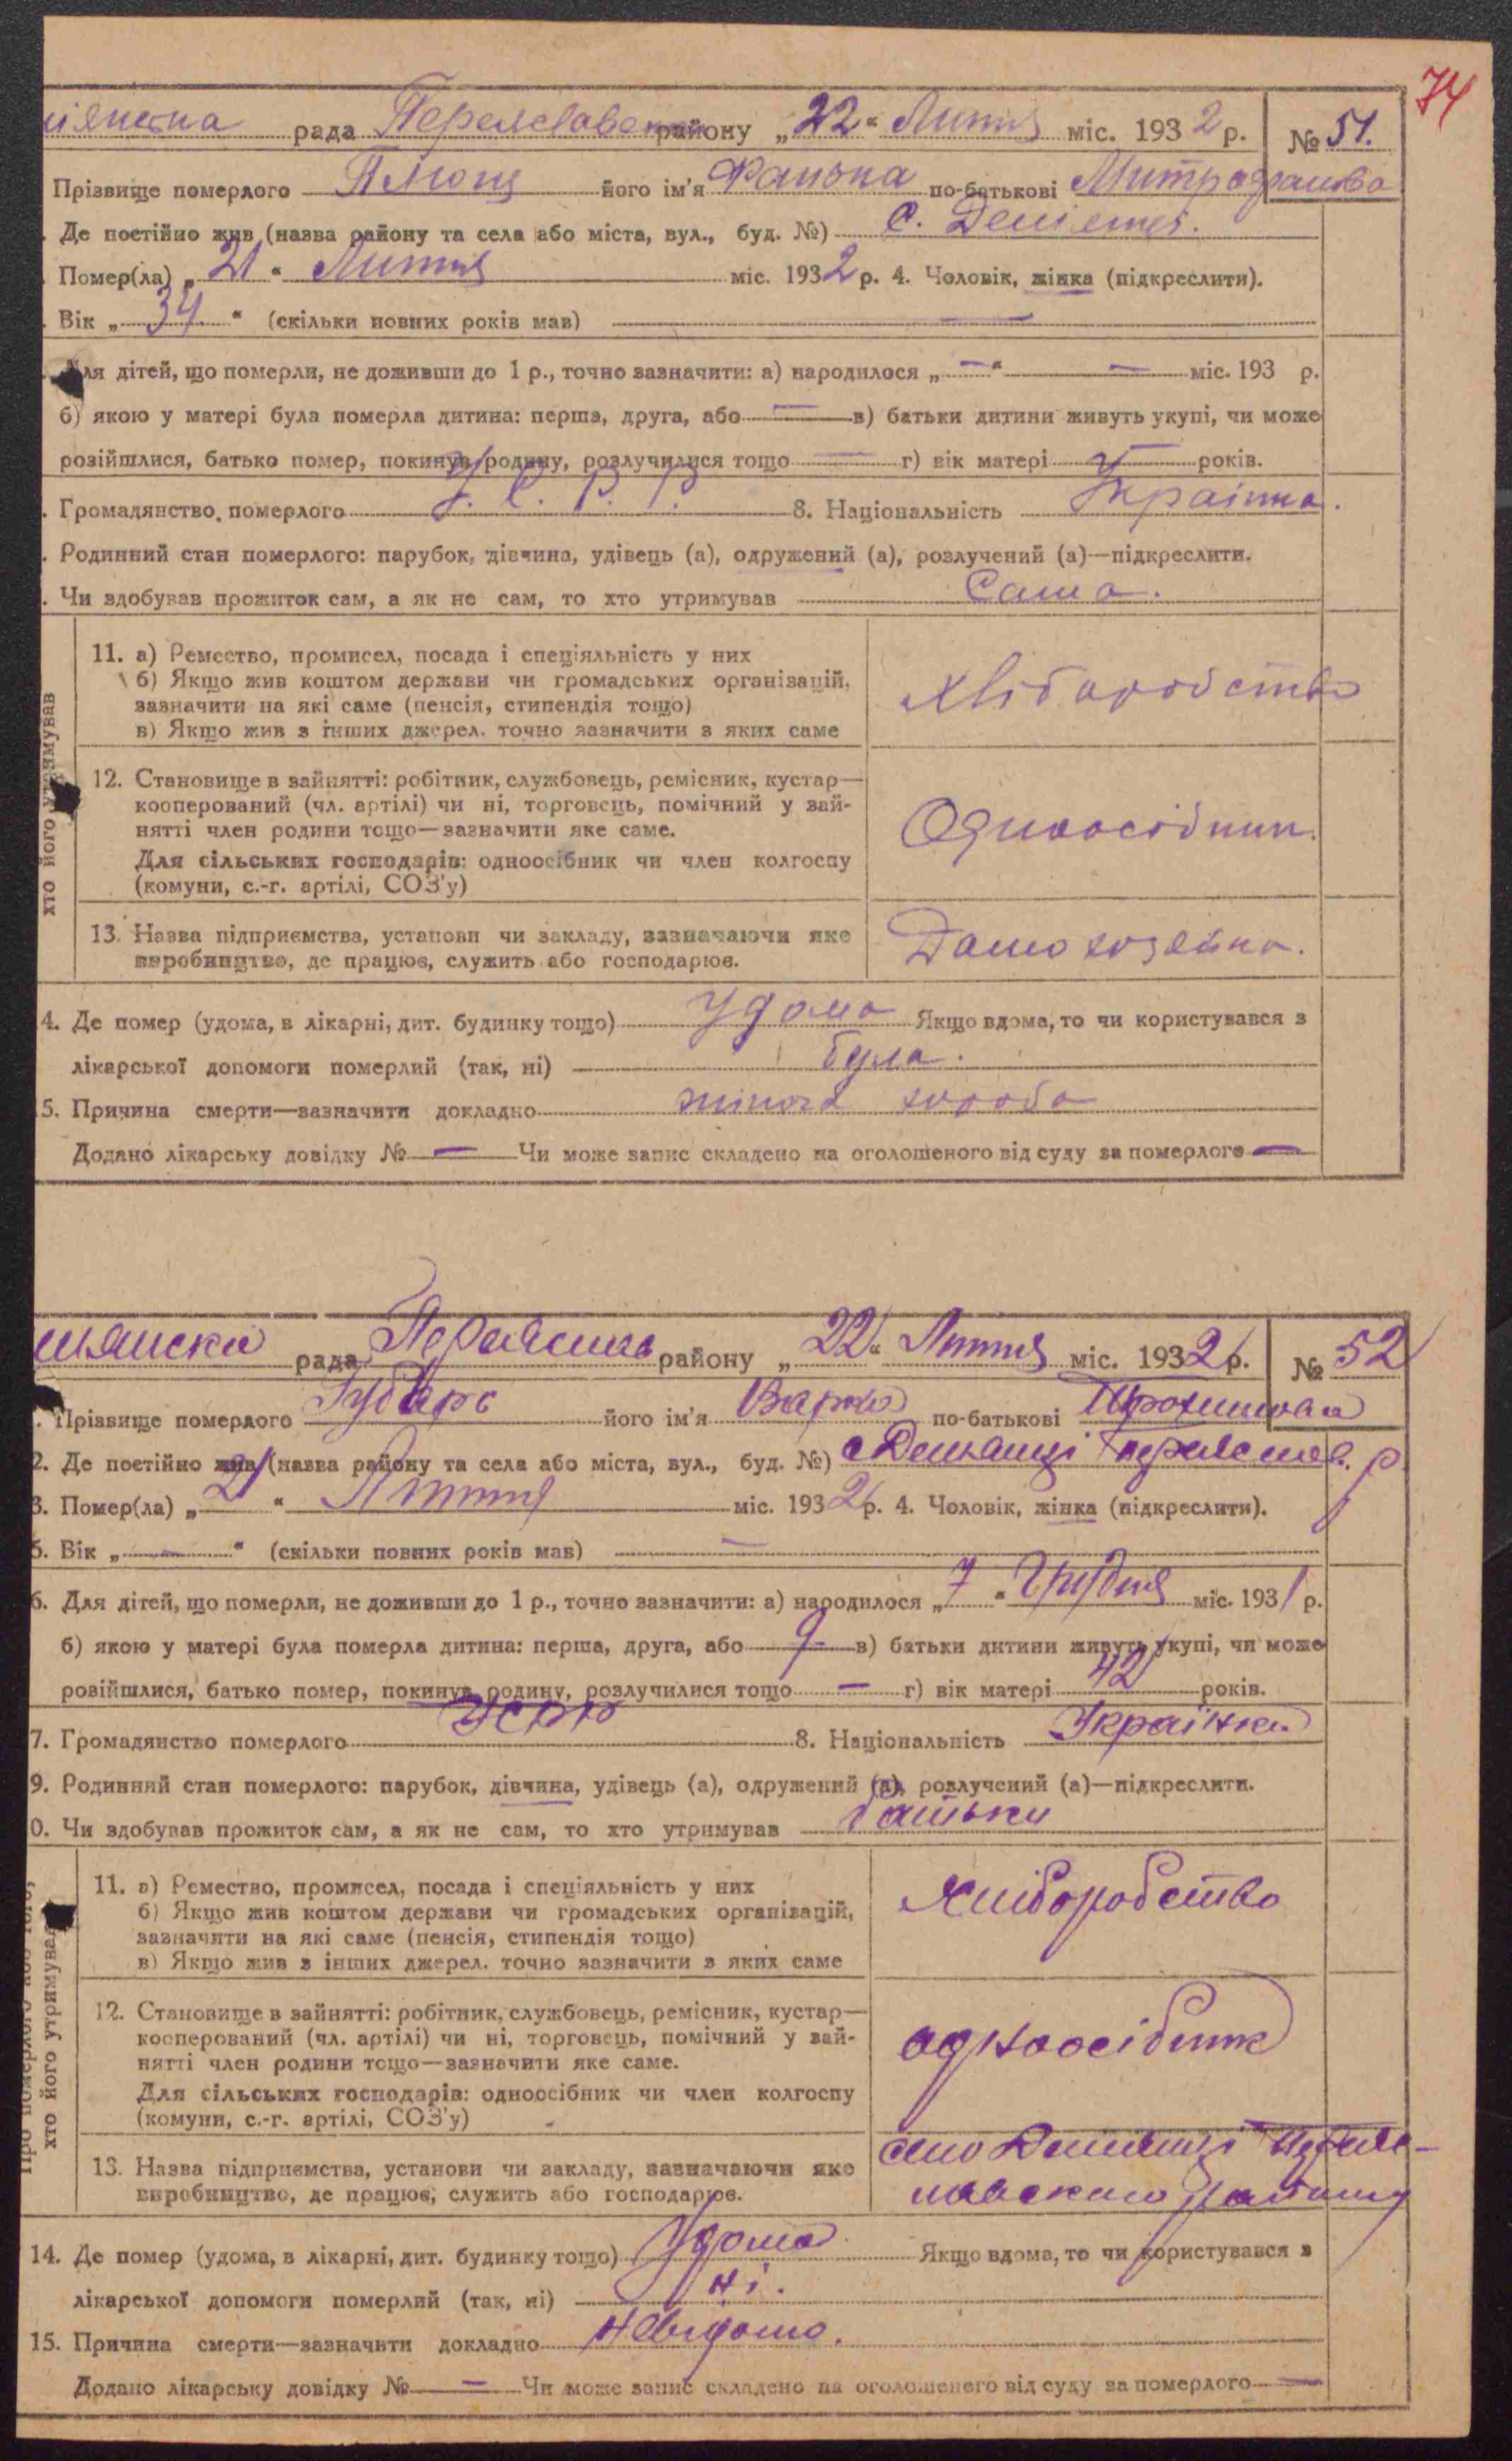 74
рада Переяславськ району „22“ Лютня міс. 1932 р. № 51.
Прізвище померлого Плющ його ім'я Фанька по-батькові Митрофанова
Де постійно жив (назва району та села або міста, вул., буд. №) С. Дем'янці.
Помер(ла) „21“ Лютня міс. 1932 р. 4. Чоловік, жінка (підкреслити).
Вік „34“ (скільки повних років мав) —
Для дітей, що померли, не доживши до 1 р., точно зазначити: а) народилося „—“ — міс. 193 р.
б) якою у матері була померла дитина: перша, друга, або — в) батьки дитини живуть укупі, чи може
розійшлися, батько помер, покинув родину, розлучилися тощо — г) вік матері — років.
Громадянство померлого У. С. Р. Р. 8. Національність Українка.
Родинний стан померлого: парубок, дівчина, удівець (а), одружений (а), розлучений (а)—підкреслити.
Чи здобував прожиток сам, а як не сам, то хто утримував Сама.
хто його утримував
11. а) Ремество, промисел, посада і спеціяльність у них
б) Якщо жив коштом держави чи громадських організацій,
зазначити на які саме (пенсія, стипендія тощо)
в) Якщо жив з інших джерел, точно зазначити з яких саме
Хліборобство
12. Становище в зайнятті: робітник, службовець, ремісник, кустар—
кооперований (чл. артілі) чи ні, торговець, помічний у зай-
нятті член родини тощо—зазначити яке саме.
Для сільських господарів: одноосібник чи член колгоспу
(комуни, с.-г. артілі, СОЗ'у)
Одноосібник.
13. Назва підприємства, установи чи закладу, зазначаючи яке
виробництво, де працює, служить або господарює.
Домохозяйка.
4. Де помер (удома, в лікарні, дит. будинку тощо) Удома Якщо вдома, то чи користувався з
лікарської допомоги померлий (так, ні) була.
5. Причина смерти—зазначити докладно жіноча хороба
Додано лікарську довідку № — Чи може запис складено на оголошеного від суду за померлого —
рада району „22“ Лютня міс. 1932 р. № 52
Прізвище померлого Губарь його ім'я Варка по-батькові
2. Де постійно жив (назва району та села або міста, вул., буд. №) с Демянці Переяслав. р
3. Помер(ла) „21“ Лютня міс. 1932 р. 4. Чоловік, жінка (підкреслити).
5. Вік „—“ (скільки повних років мав) —
6. Для дітей, що померли, не доживши до 1 р., точно зазначити: а) народилося „7“ Грудня міс. 1931 р.
б) якою у матері була померла дитина: перша, друга, або 9 в) батьки дитини живуть укупі, чи може
розійшлися, батько помер, покинув родину, розлучилися тощо — г) вік матері 42 років.
7. Громадянство померлого УСРР 8. Національність Українка
9. Родинний стан померлого: парубок, дівчина, удівець (а), одружений (а), розлучений (а)—підкреслити.
0. Чи здобував прожиток сам, а як не сам, то хто утримував батьки
хто його утримував
11. а) Ремество, промисел, посада і спеціяльність у них
б) Якщо жив коштом держави чи громадських організацій,
зазначити на які саме (пенсія, стипендія тощо)
в) Якщо жив з інших джерел, точно зазначити з яких саме
Хліборобство
12. Становище в зайнятті: робітник, службовець, ремісник, кустар—
кооперований (чл. артілі) чи ні, торговець, помічний у зай-
нятті член родини тощо—зазначити яке саме.
Для сільських господарів: одноосібник чи член колгоспу
(комуни, с.-г. артілі, СОЗ'у)
одноосібник
13. Назва підприємства, установи чи закладу, зазначаючи яке
виробництво, де працює, служить або господарює.
село Демянці Переяс-
лавского району
14. Де помер (удома, в лікарні, дит. будинку тощо) Удома Якщо вдома, то чи користувався з
лікарської допомоги померлий (так, ні) ні.
15. Причина смерти—зазначити докладно Невідомо.
Додано лікарську довідку № — Чи може запис складено на оголошеного від суду за померлого —